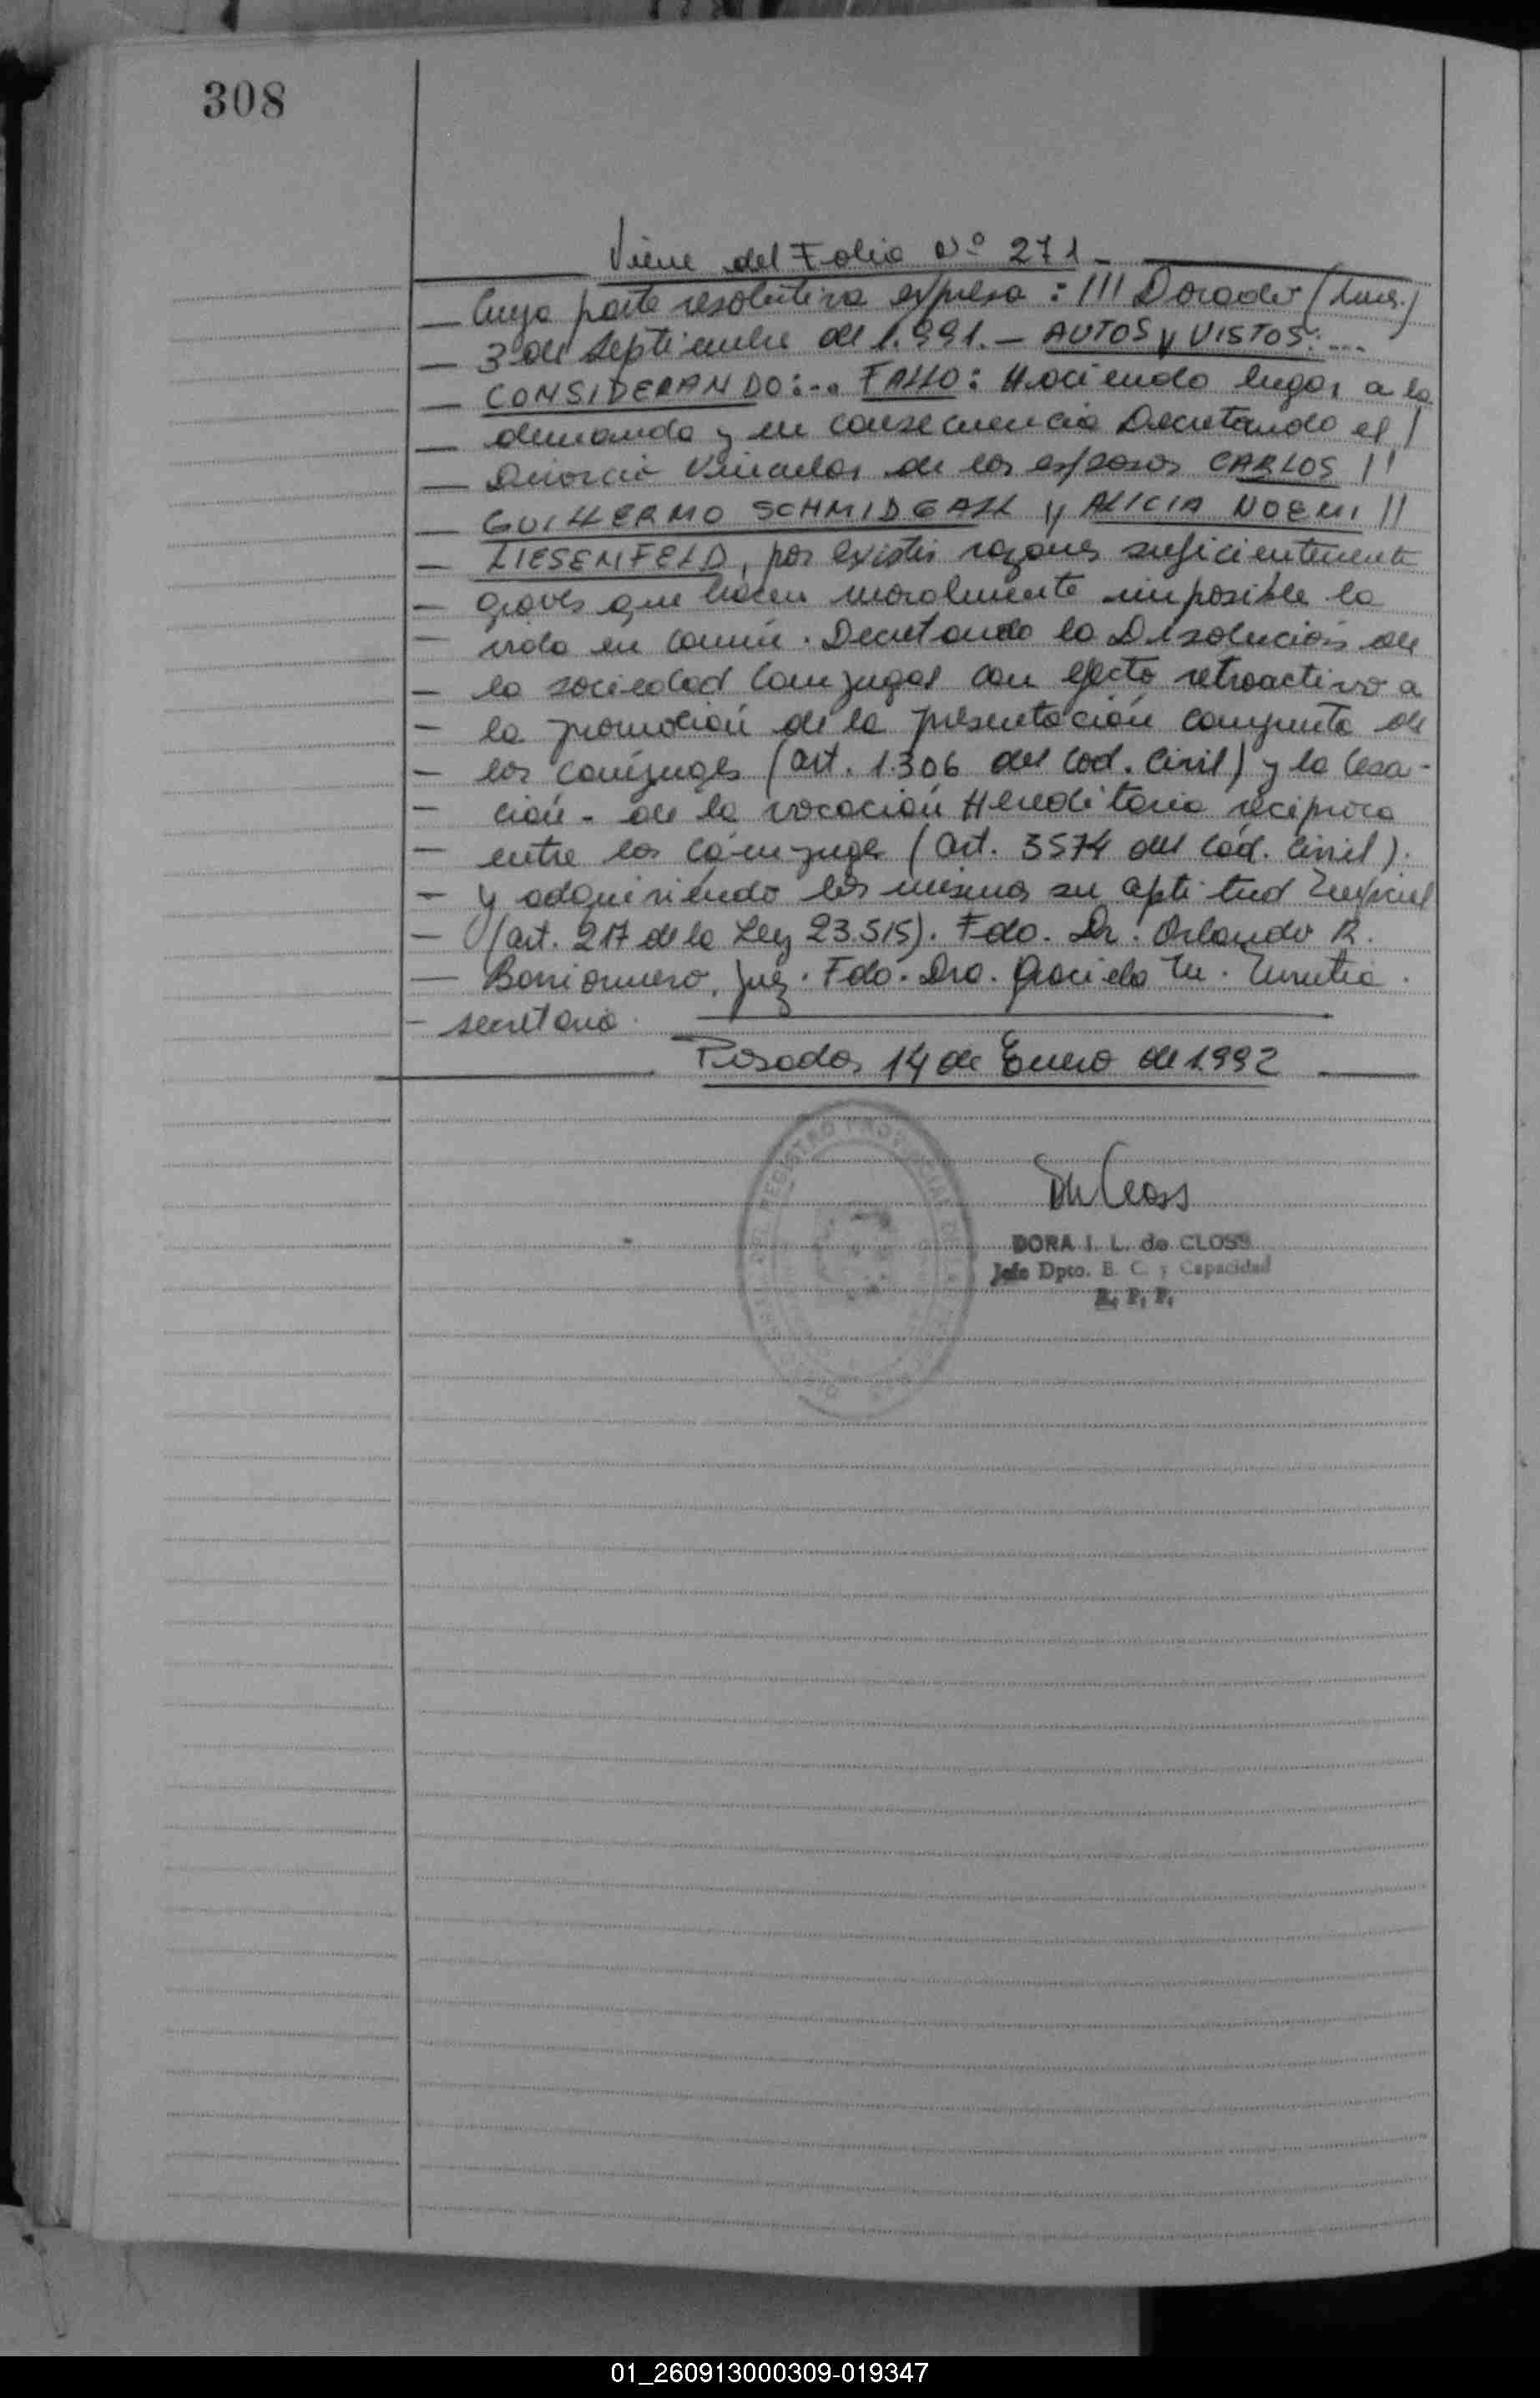 308
Viene del Folio Nº 271 -
— Cuya parte resolutiva expresa : /// Dorado (Mnes.)
— 3 de Septiembre de 1.991.- AUTOS y VISTOS: ...
— CONSIDERANDO:... FALLO: Haciendo lugar a la
— demanda y en consecuencia Decretando el /
— Divorcio Vincular de los esposos CARLOS //
— GUILLERMO SCHMIDGALL y ALICIA NOEMI //
— LIESENFELD, por existir razones suficientemente
— graves que hacen moralmente imposible la
— vida en común. Decretando la Disolución de
— la sociedad Conyugal con efecto retroactivo a
— la promoción de la presentación conjunta de
— los cónyuges (art. 1.306 del Cod. Civil) y la Cesa-
— ción - de la vocación Hereditaria recíproca
— entre los cónyuges (art. 3574 del Cód. Civil).
— y adquiriendo los mismos su aptitud Nupcial
— (art. 217 de la Ley 23.515). Fdo. Dr. Orlando R.
— Barrionuevo, Juez. Fdo. Dra. Graciela M.
- secretaria.
Posadas 14 de Enero de 1.992
REGISTRO PROVINCIAL DE
DORA I. L. de CLOSS
Jefe Dpto. E. C. y Capacidad
R. P. P.
01_260913000309-019347